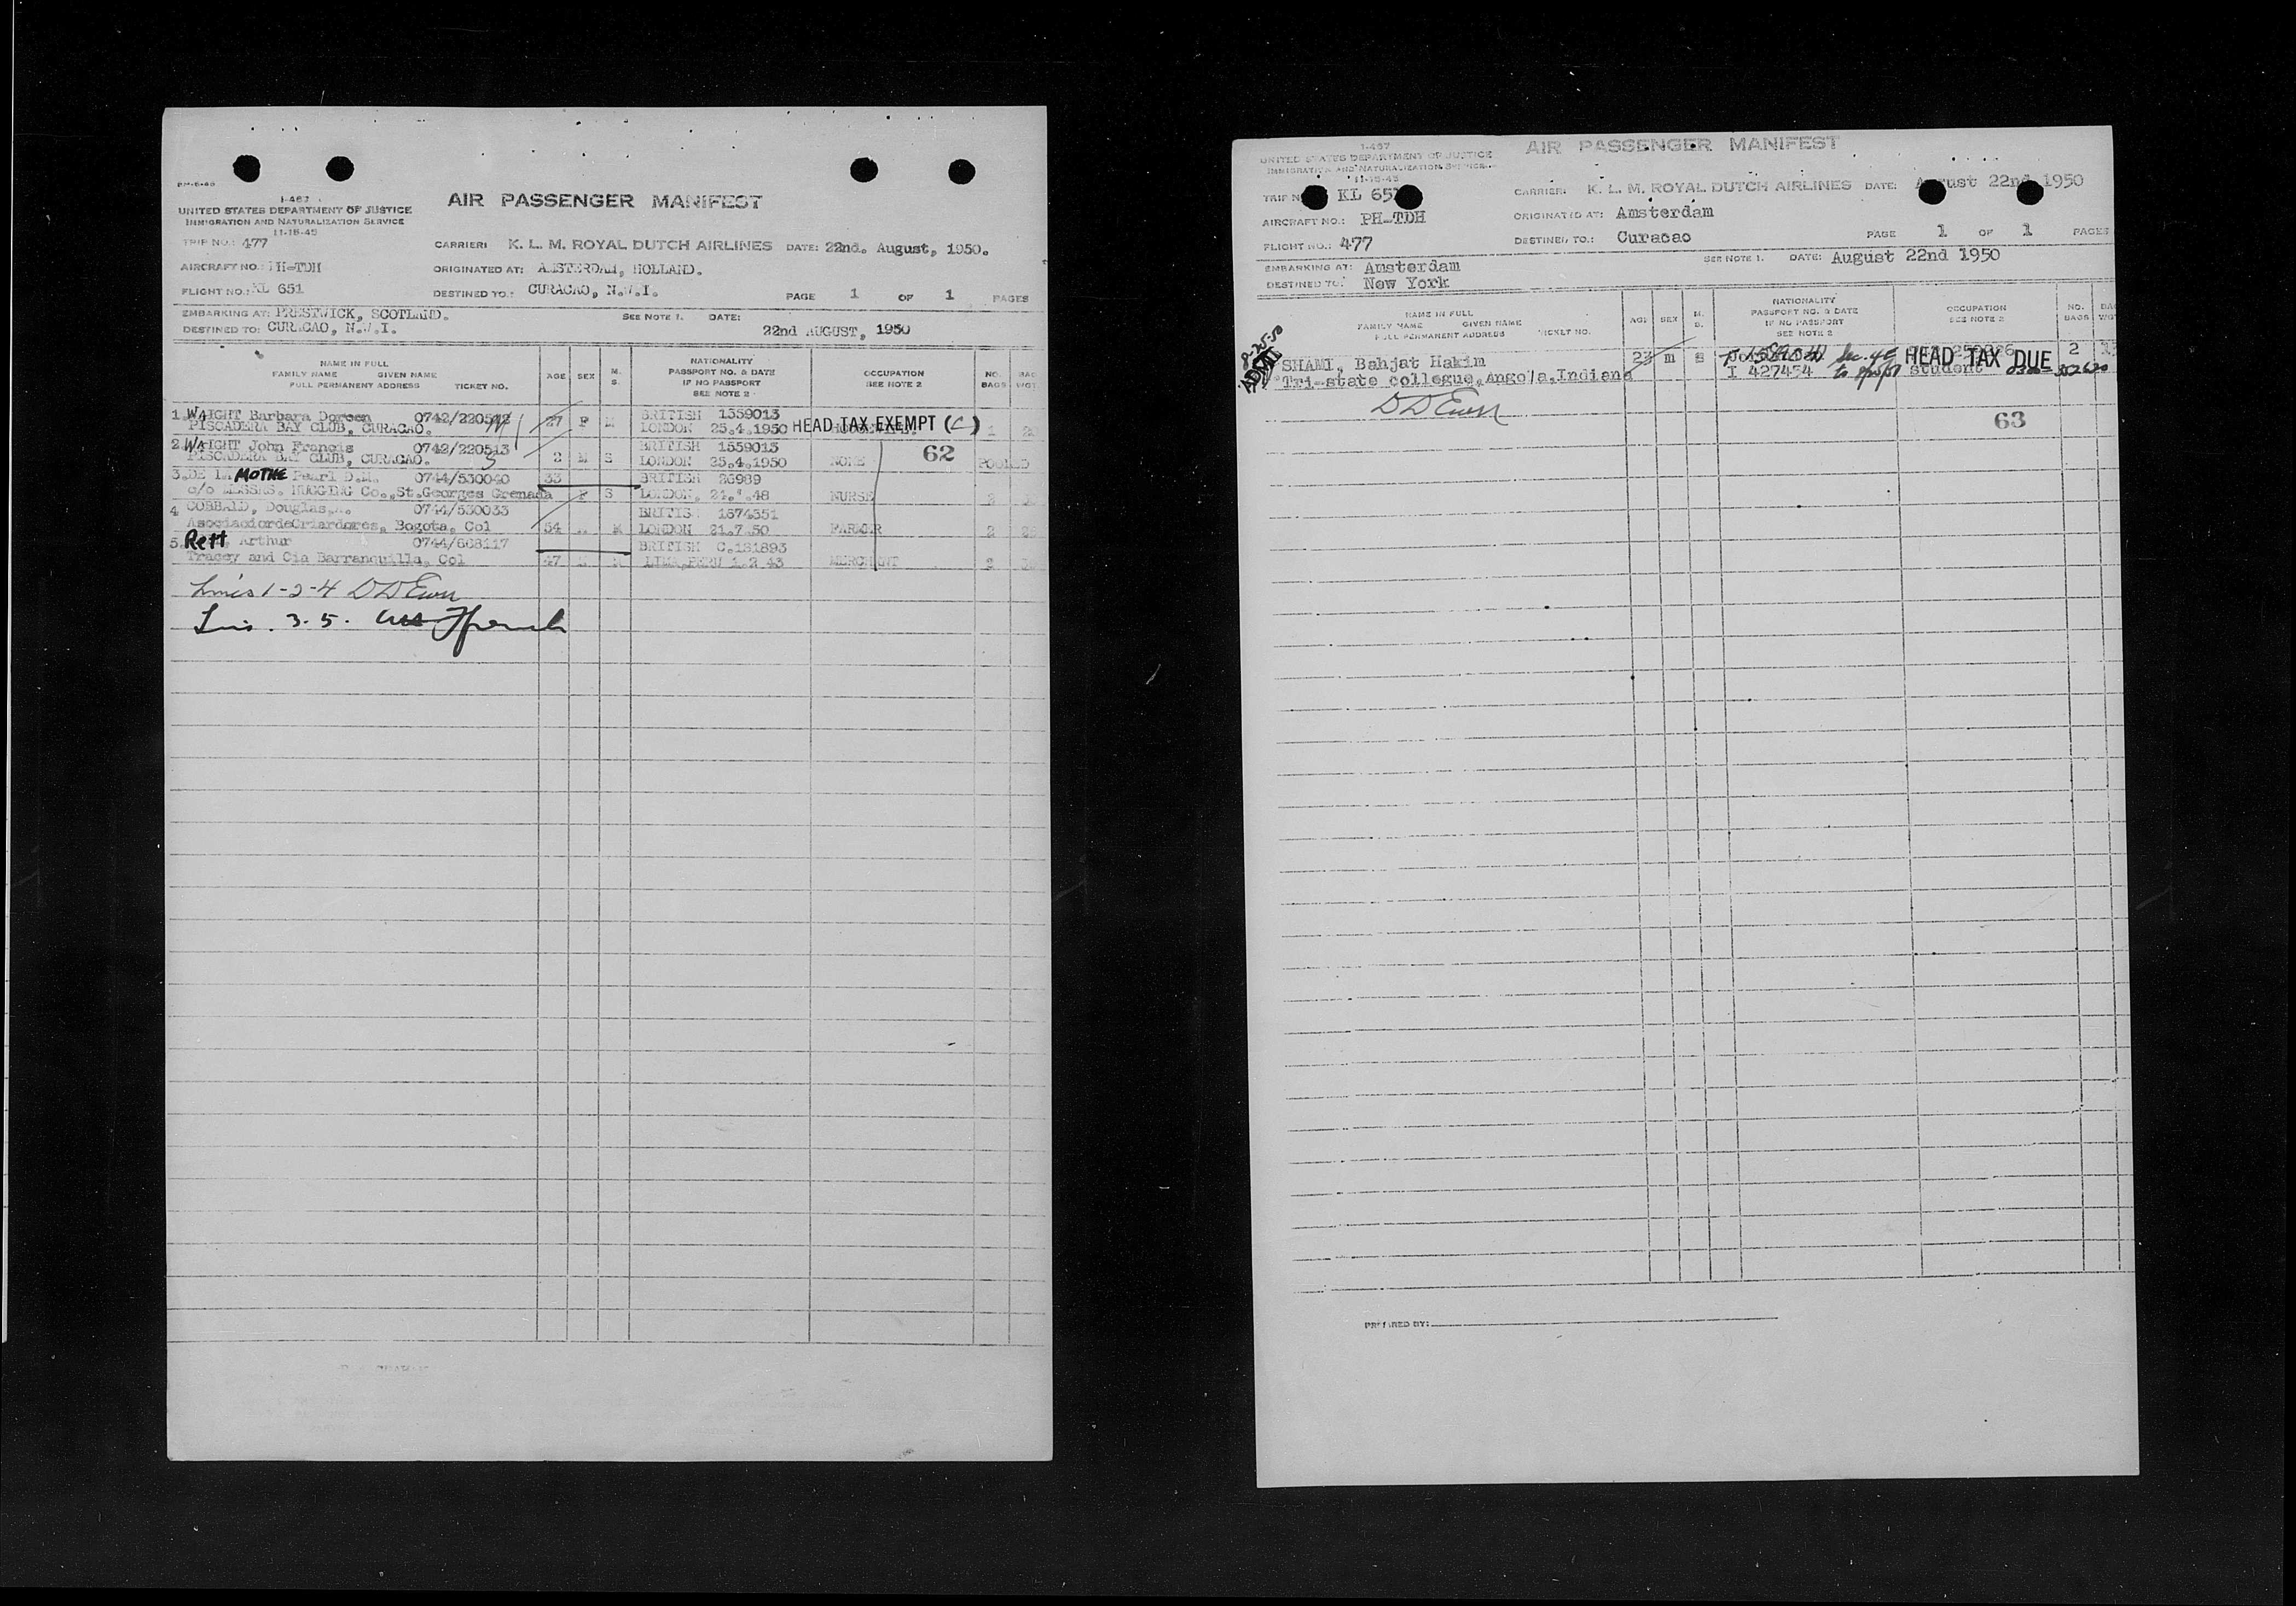 PM-6-46
I-467
UNITED STATES DEPARTMENT OF JUSTICE
IMMIGRATION AND NATURALIZATION SERVICE
11-15-45
AIR PASSENGER MANIFEST
TRIP NO.: 477 CARRIER: K. L. M. ROYAL DUTCH AIRLINES DATE: 22nd. August, 1950.
AIRCRAFT NO.: PH-TDH ORIGINATED AT: AMSTERDAM, HOLLAND.
FLIGHT NO.: KL 651 DESTINED TO.: CURACAO, N.W.I. PAGE 1 OF 1 PAGES
EMBARKING AT: PRESTWICK, SCOTLAND. SEE NOTE 1. DATE:
DESTINED TO: CURACAO, N.W.I. 22nd AUGUST, 1950
NAME IN FULL
FAMILY NAME GIVEN NAME
FULL PERMANENT ADDRESS TICKET NO.
AGE SEX M. S.
NATIONALITY
PASSPORT NO. & DATE
IF NO PASSPORT
SEE NOTE 2
OCCUPATION
SEE NOTE 2
NO. BAGS BAG WGT
1. WAIGHT Barbara Doreen 0742/220512 27 F M BRITISH 1559013
PISCADERA BAY CLUB, CURACAO. LONDON 25.4.1950 HEAD TAX EXEMPT (C) 1
2. WAIGHT John Francis 0742/220513 BRITISH 1559013
PISCADERA BAY CLUB, CURACAO. 2 M S LONDON 25.4.1950 NONE POOLED
62
3. DE LA MOTHE Pearl D.M. 0744/530040 33 BRITISH 26989
c/o MESSRS. HUGGING Co.,St.Georges Grenada F S LONDON, 48 NURSE 2
4 COBBALD, Douglas, 0744/530033 BRITISH 1674351
AsociaciondeCriardores, Bogota, Col 54 M LONDON 21.7.50 FARMER 2
5. Rett Arthur 0744/668117 BRITISH C.181893
Tracey and Cia Barranquilla, Col 47 M LIMA,PERU 1.2 43 MERCHANT 2
Lines 1-2-4 D D Ewen
3-5.
I-467
UNITED STATES DEPARTMENT OF JUSTICE
IMMIGRATION AND NATURALIZATION SERVICE
11-15-45
AIR PASSENGER MANIFEST
TRIP NO KL 651 CARRIER: K. L. M. ROYAL DUTCH AIRLINES DATE: August 22nd 1950
AIRCRAFT NO.: PH-TDH ORIGINATED AT: Amsterdam
FLIGHT NO.: 477 DESTINED TO.: Curacao PAGE 1 OF 1 PAGES
EMBARKING AT: Amsterdam SEE NOTE 1. DATE: August 22nd 1950
DESTINED TO: New York
NAME IN FULL
FAMILY NAME GIVEN NAME
FULL PERMANENT ADDRESS TICKET NO.
AGE SEX M. S.
NATIONALITY
PASSPORT NO. & DATE
IF NO PASSPORT
SEE NOTE 2
OCCUPATION
SEE NOTE 2
NO. BAGS
8-25-50
SHAMI, Bahjat Hakim 23 m S Sec. 4E HEAD TAX DUE 2
Tri-state collegue,Angola,Indiana I 427454 to student
D D Ewen
63
PREPARED BY: